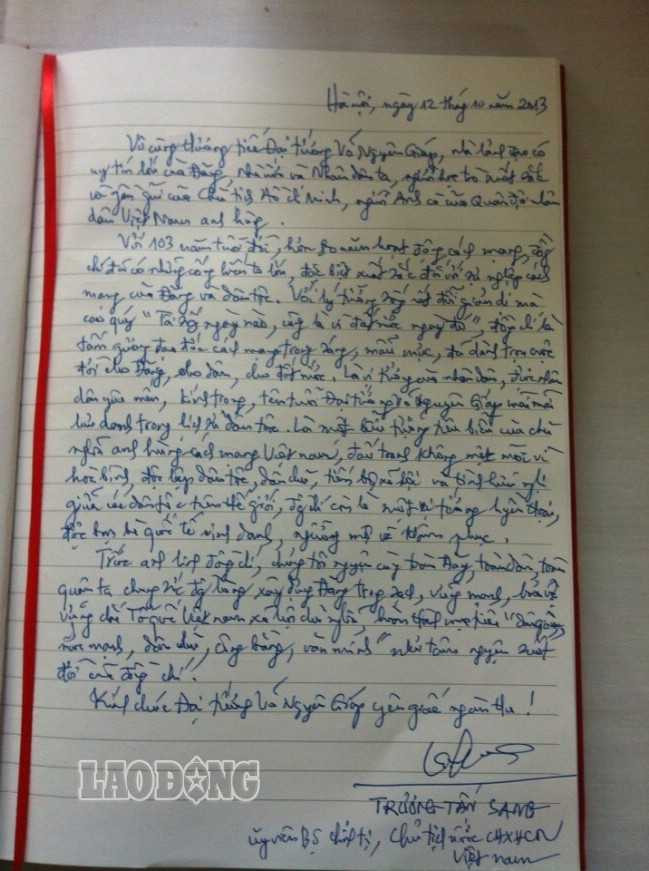 Hà nội, ngày 12 tháng 10 năm 2013
Vô cùng thương tiếc Đại tướng Võ Nguyên Giáp, nhà lãnh đạo có
uy tín lớn của Đảng, Nhà nước và Nhân dân ta, người học trò xuất sắc
và gần gũi của Chủ tịch Hồ Chí Minh, người Anh cả của Quân đội nhân
dân Việt Nam anh hùng.
Với 103 năm tuổi đời, hơn 80 năm hoạt động cách mạng, đồng
chí đã có những cống hiến to lớn, đặc biệt xuất sắc đối với sự nghiệp cách
mạng của Đảng và dân tộc. Với lý tưởng sống rất đỗi giản dị mà
cao quý "Tôi sống ngày nào, cũng là vì đất nước ngày đó", đồng chí là
tấm gương đạo đức cách mạng trong sáng, mẫu mực, đã dành trọn cuộc
đời cho Đảng, cho dân, cho đất nước. Là vị tướng của nhân dân, được nhân
dân yêu mến, kính trọng, tên tuổi Đại tướng Võ Nguyên Giáp mãi mãi
lưu danh trong lịch sử dân tộc. Là một biểu tượng tiêu biểu của chủ
nghĩa anh hùng cách mạng Việt nam, đấu tranh không mệt mỏi vì
hòa bình, độc lập dân tộc, dân chủ, tiến bộ xã hội và tình hữu nghị
giữa các dân tộc trên thế giới, đồng chí còn là một vị tướng huyền thoại,
được bạn bè quốc tế vinh danh, ngưỡng mộ và khâm phục.
Trước anh linh đồng chí, chúng tôi nguyện cùng toàn Đảng, toàn dân, toàn
quân ta chung sức đồng lòng, xây dựng Đảng trong sạch, vững mạnh, bảo vệ
vững chắc Tổ quốc Việt nam xã hội chủ nghĩa, hoàn thành mục tiêu "dân giàu,
nước mạnh, dân chủ, công bằng, văn minh" như tâm nguyện suốt
đời của đồng chí.
Kính chúc Đại tướng Võ Nguyên Giáp yên giấc ngàn thu!
LAO ĐỘNG
TRƯƠNG TẤN SANG
Ủy viên Bộ chính trị, Chủ tịch nước CHXHCN
Việt nam